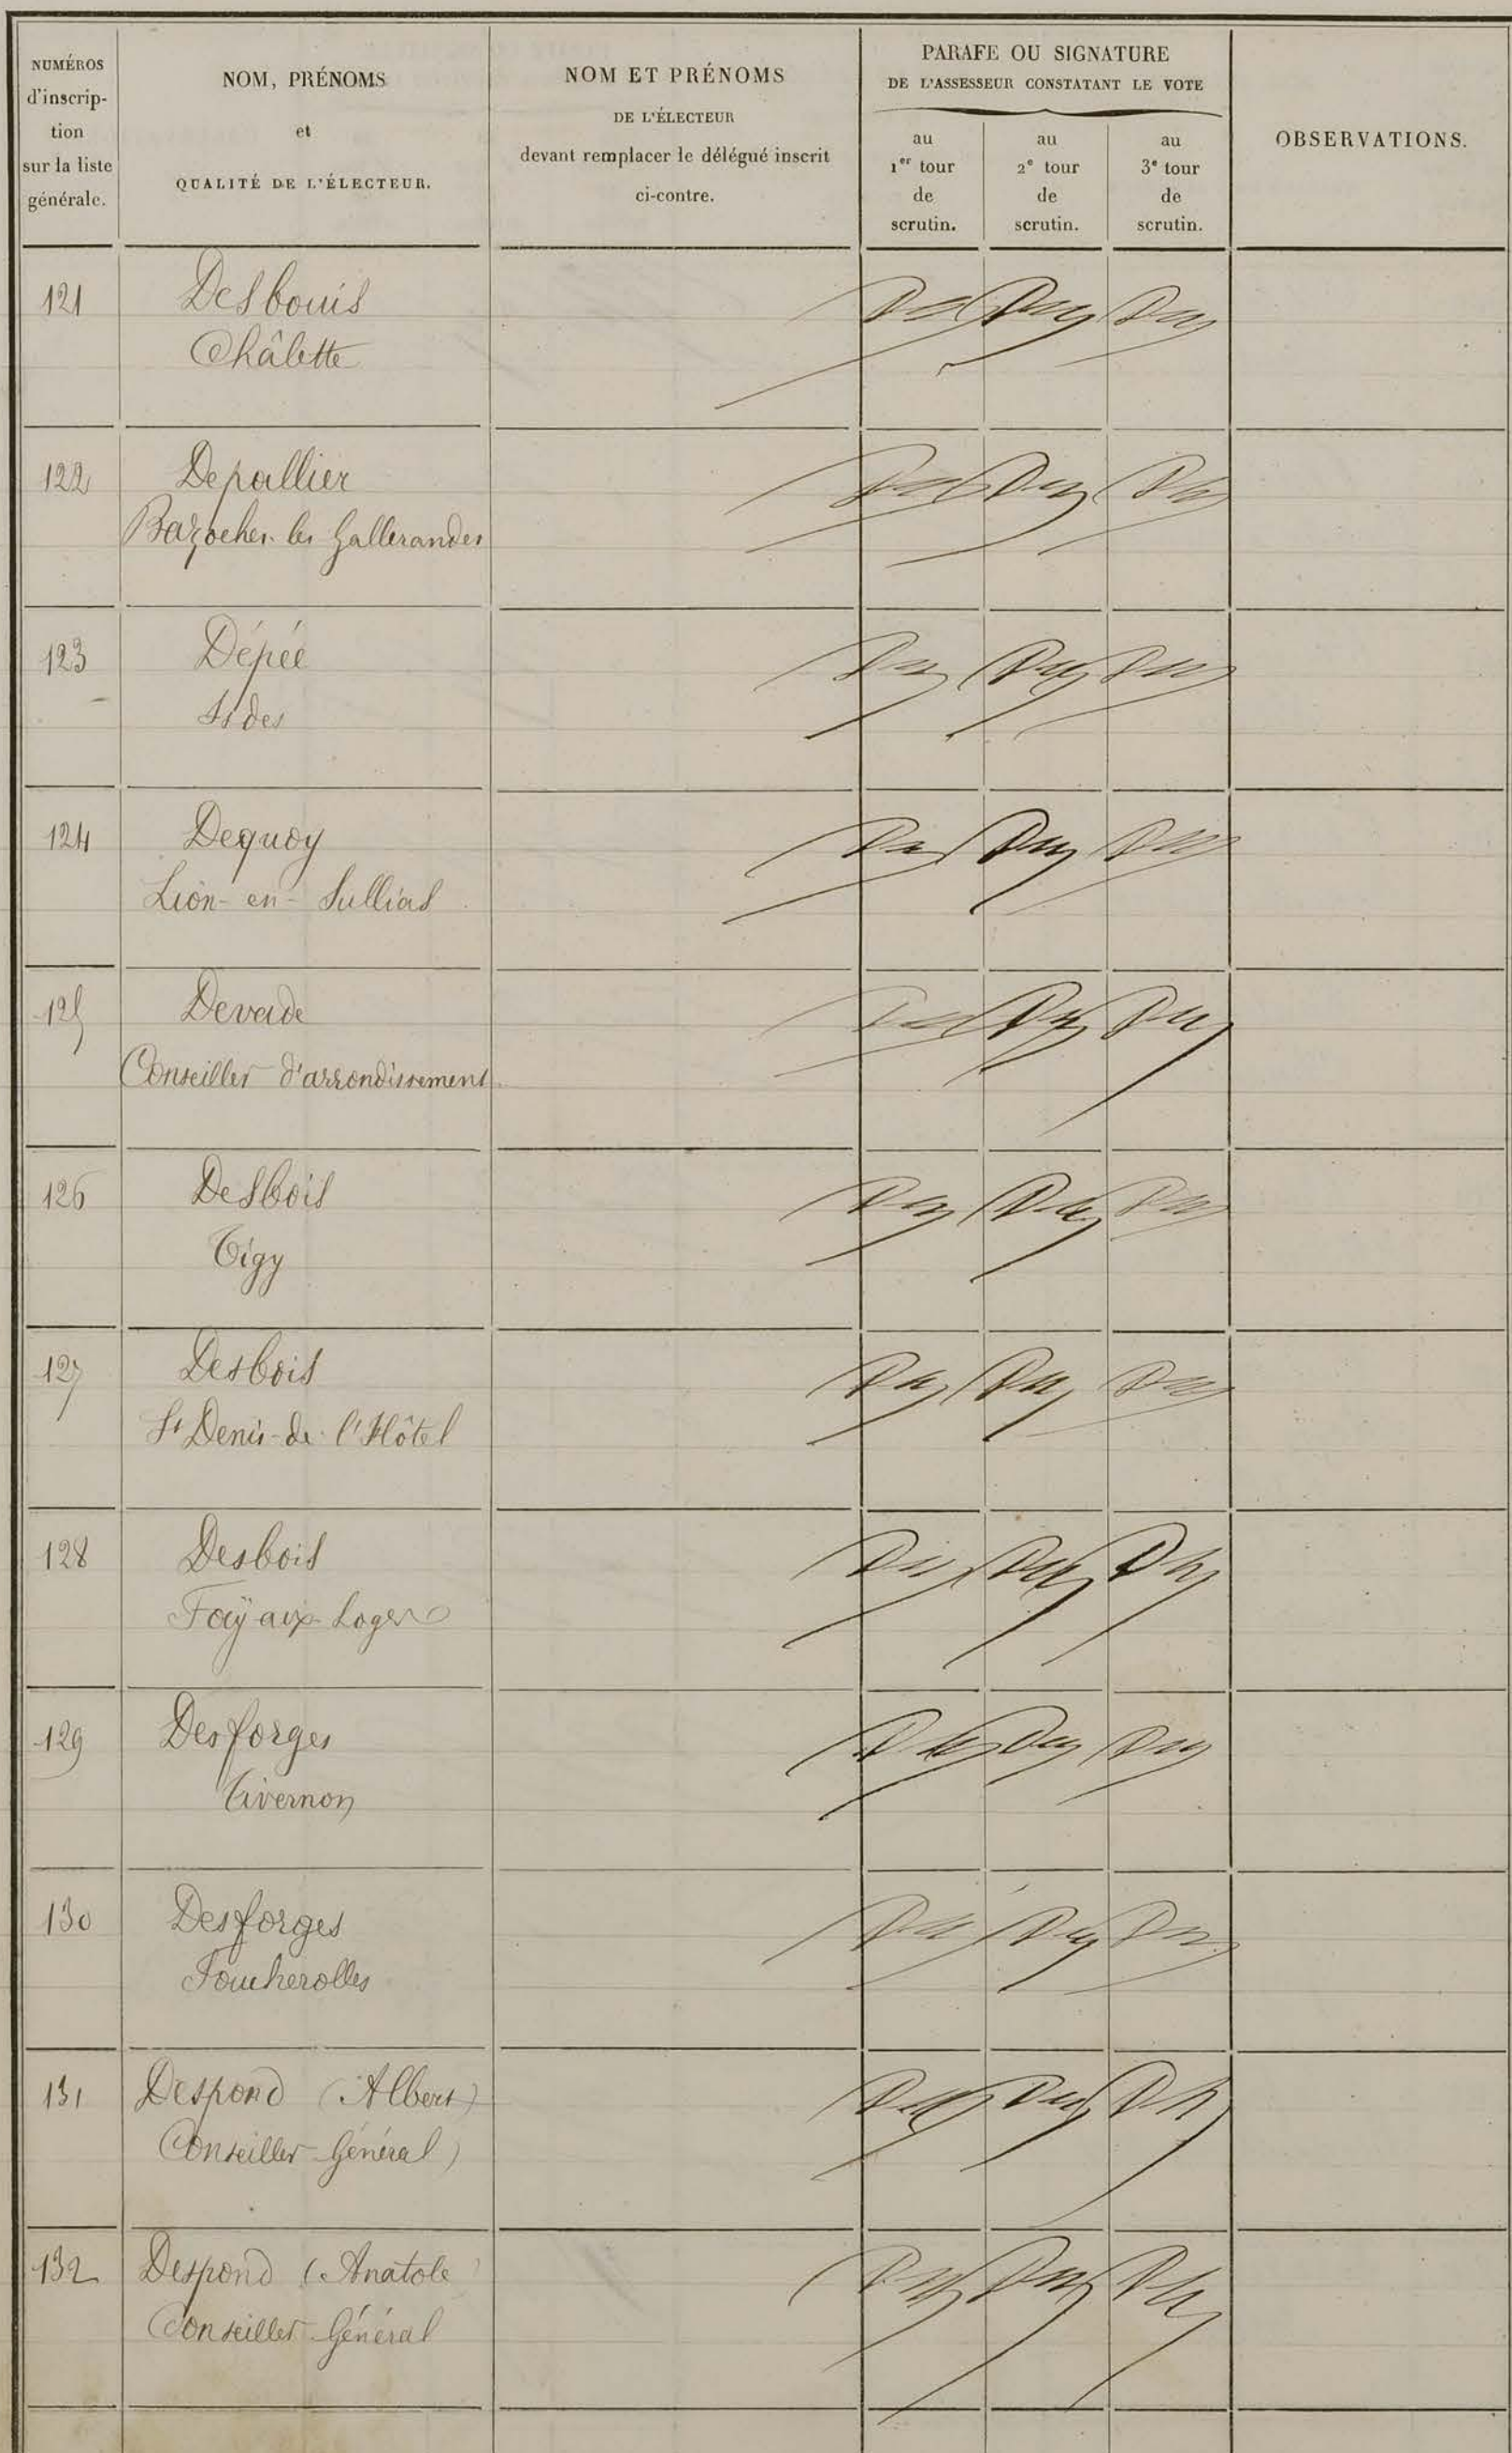 NUMÉROS
d'inscrip-
tion
sur la liste
générale.
NOM, PRÉNOMS
et
QUALITÉ DE L'ÉLECTEUR.
NOM ET PRÉNOMS
DE L'ÉLECTEUR
devant remplacer le délégué inscrit
ci-contre.
PARAFE OU SIGNATURE
DE L'ASSESSEUR CONSTATANT LE VOTE
au
1er tour
de
scrutin.
au
2e tour
de
scrutin.
au
3e tour
de
scrutin.
OBSERVATIONS.
121 Desbouis
Châlette
122 Depallier
Bazoches les Gallerandes
123 Dépée
124 Dequoy
Lion-en-Sullias
125 Devade
Conseiller d'arrondissement
126 Desbois
Tigy
127 Desbois
St Denis-de-l'Hôtel
128 Desbois
Faÿ aux Loges
129 Desforges
Tivernon
130 Desforges
Foucherolles
131 Despond (Albert)
Conseiller Général
132 Despond (Anatole
Conseiller Général